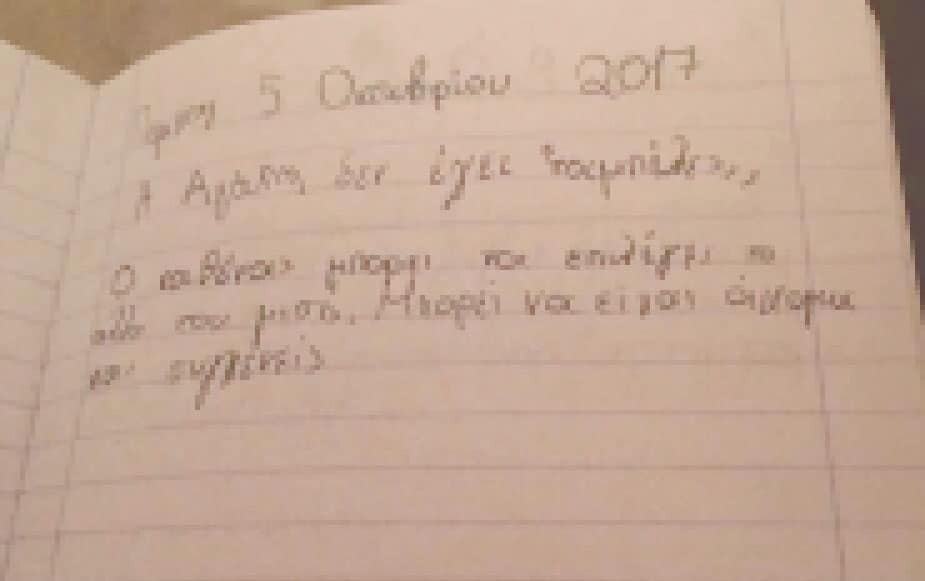 5 Οκτωβρίου 2017
Αγάπη δεν έχει "ταμπέλες,,
Ο καθένας μπορεί να επιλέγει το
άλλο του μισό. Μπορεί να είναι άγνωμα
και συγγενείς